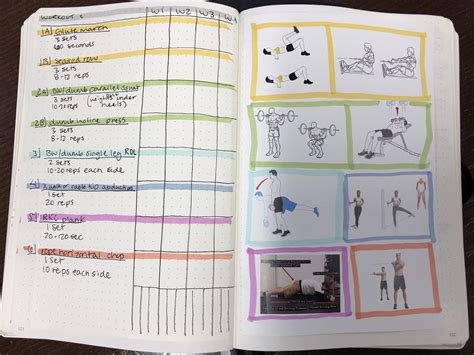 WORKOUT C W1 W2 W3 W4
1A) Glute march
3 sets
60 seconds
1B) Seated row
3 sets
8-12 reps
2A) BW/dumb parallel squat
3 sets (weights under
10-20 reps heels)
2B) dumb incline press
3 sets
8-12 reps
3) BW/dumb single leg RDL
2 sets
10-20 reps each side
4) hip abduction
1 set
20 reps
5) RKC plank
1 set
20-120 sec
6) rope horizontal chop
1 set
10 reps each side